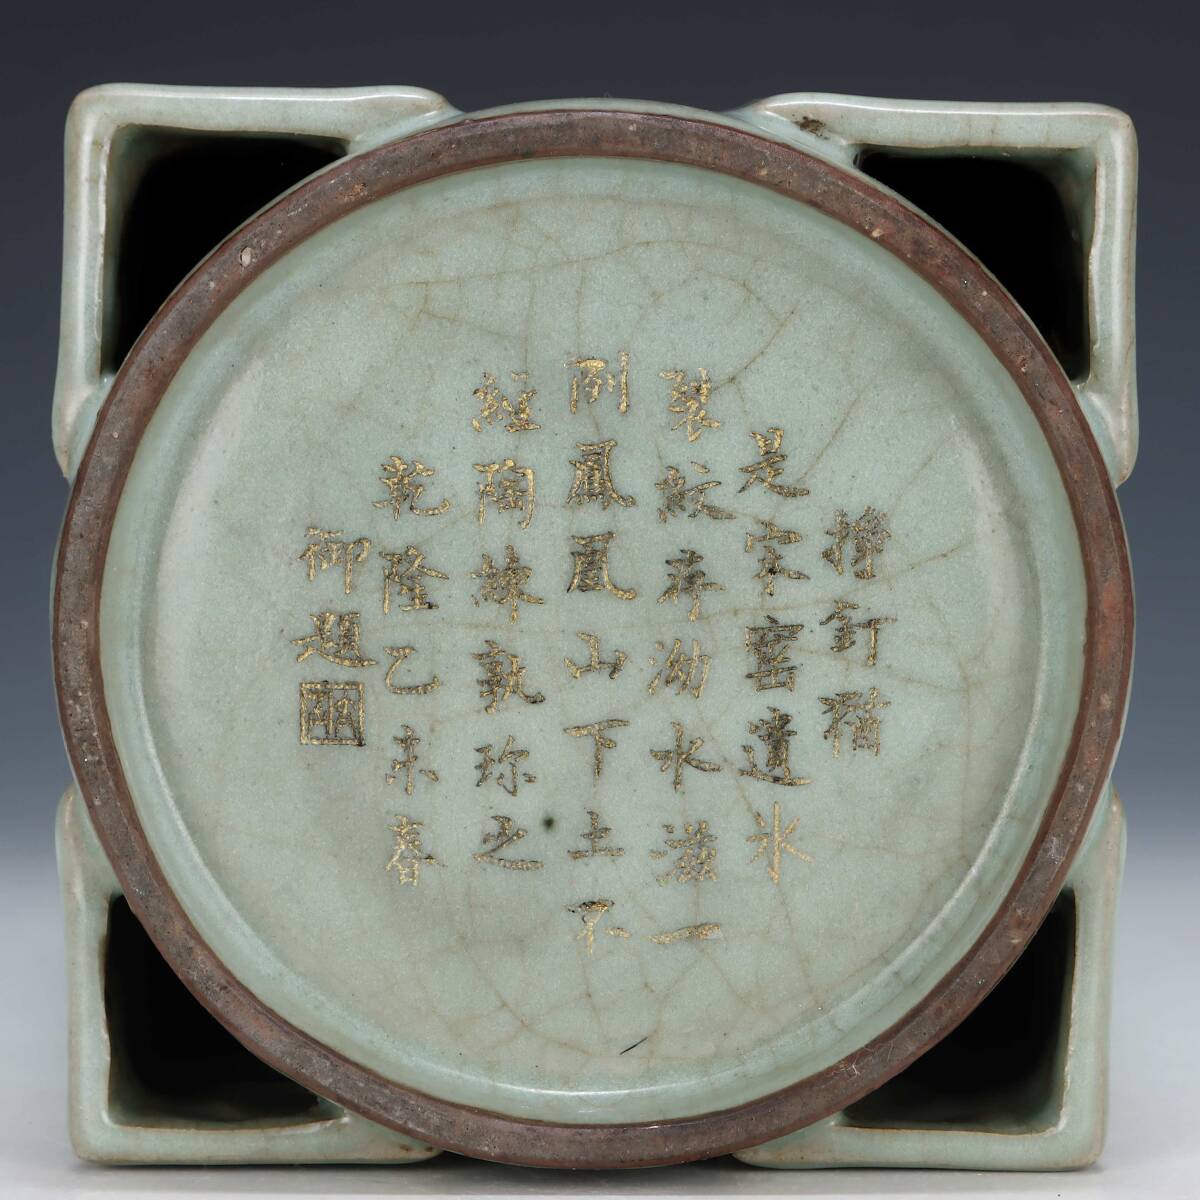 撐釘猶
是宋窰遺氷
裂紋存泑水滋一
例鳳凰山下土不
經陶煉孰珍之
乾隆乙未春
御題